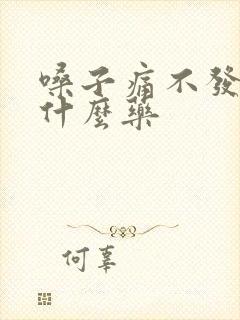 嗓子痛不發
什麼藥
何辜